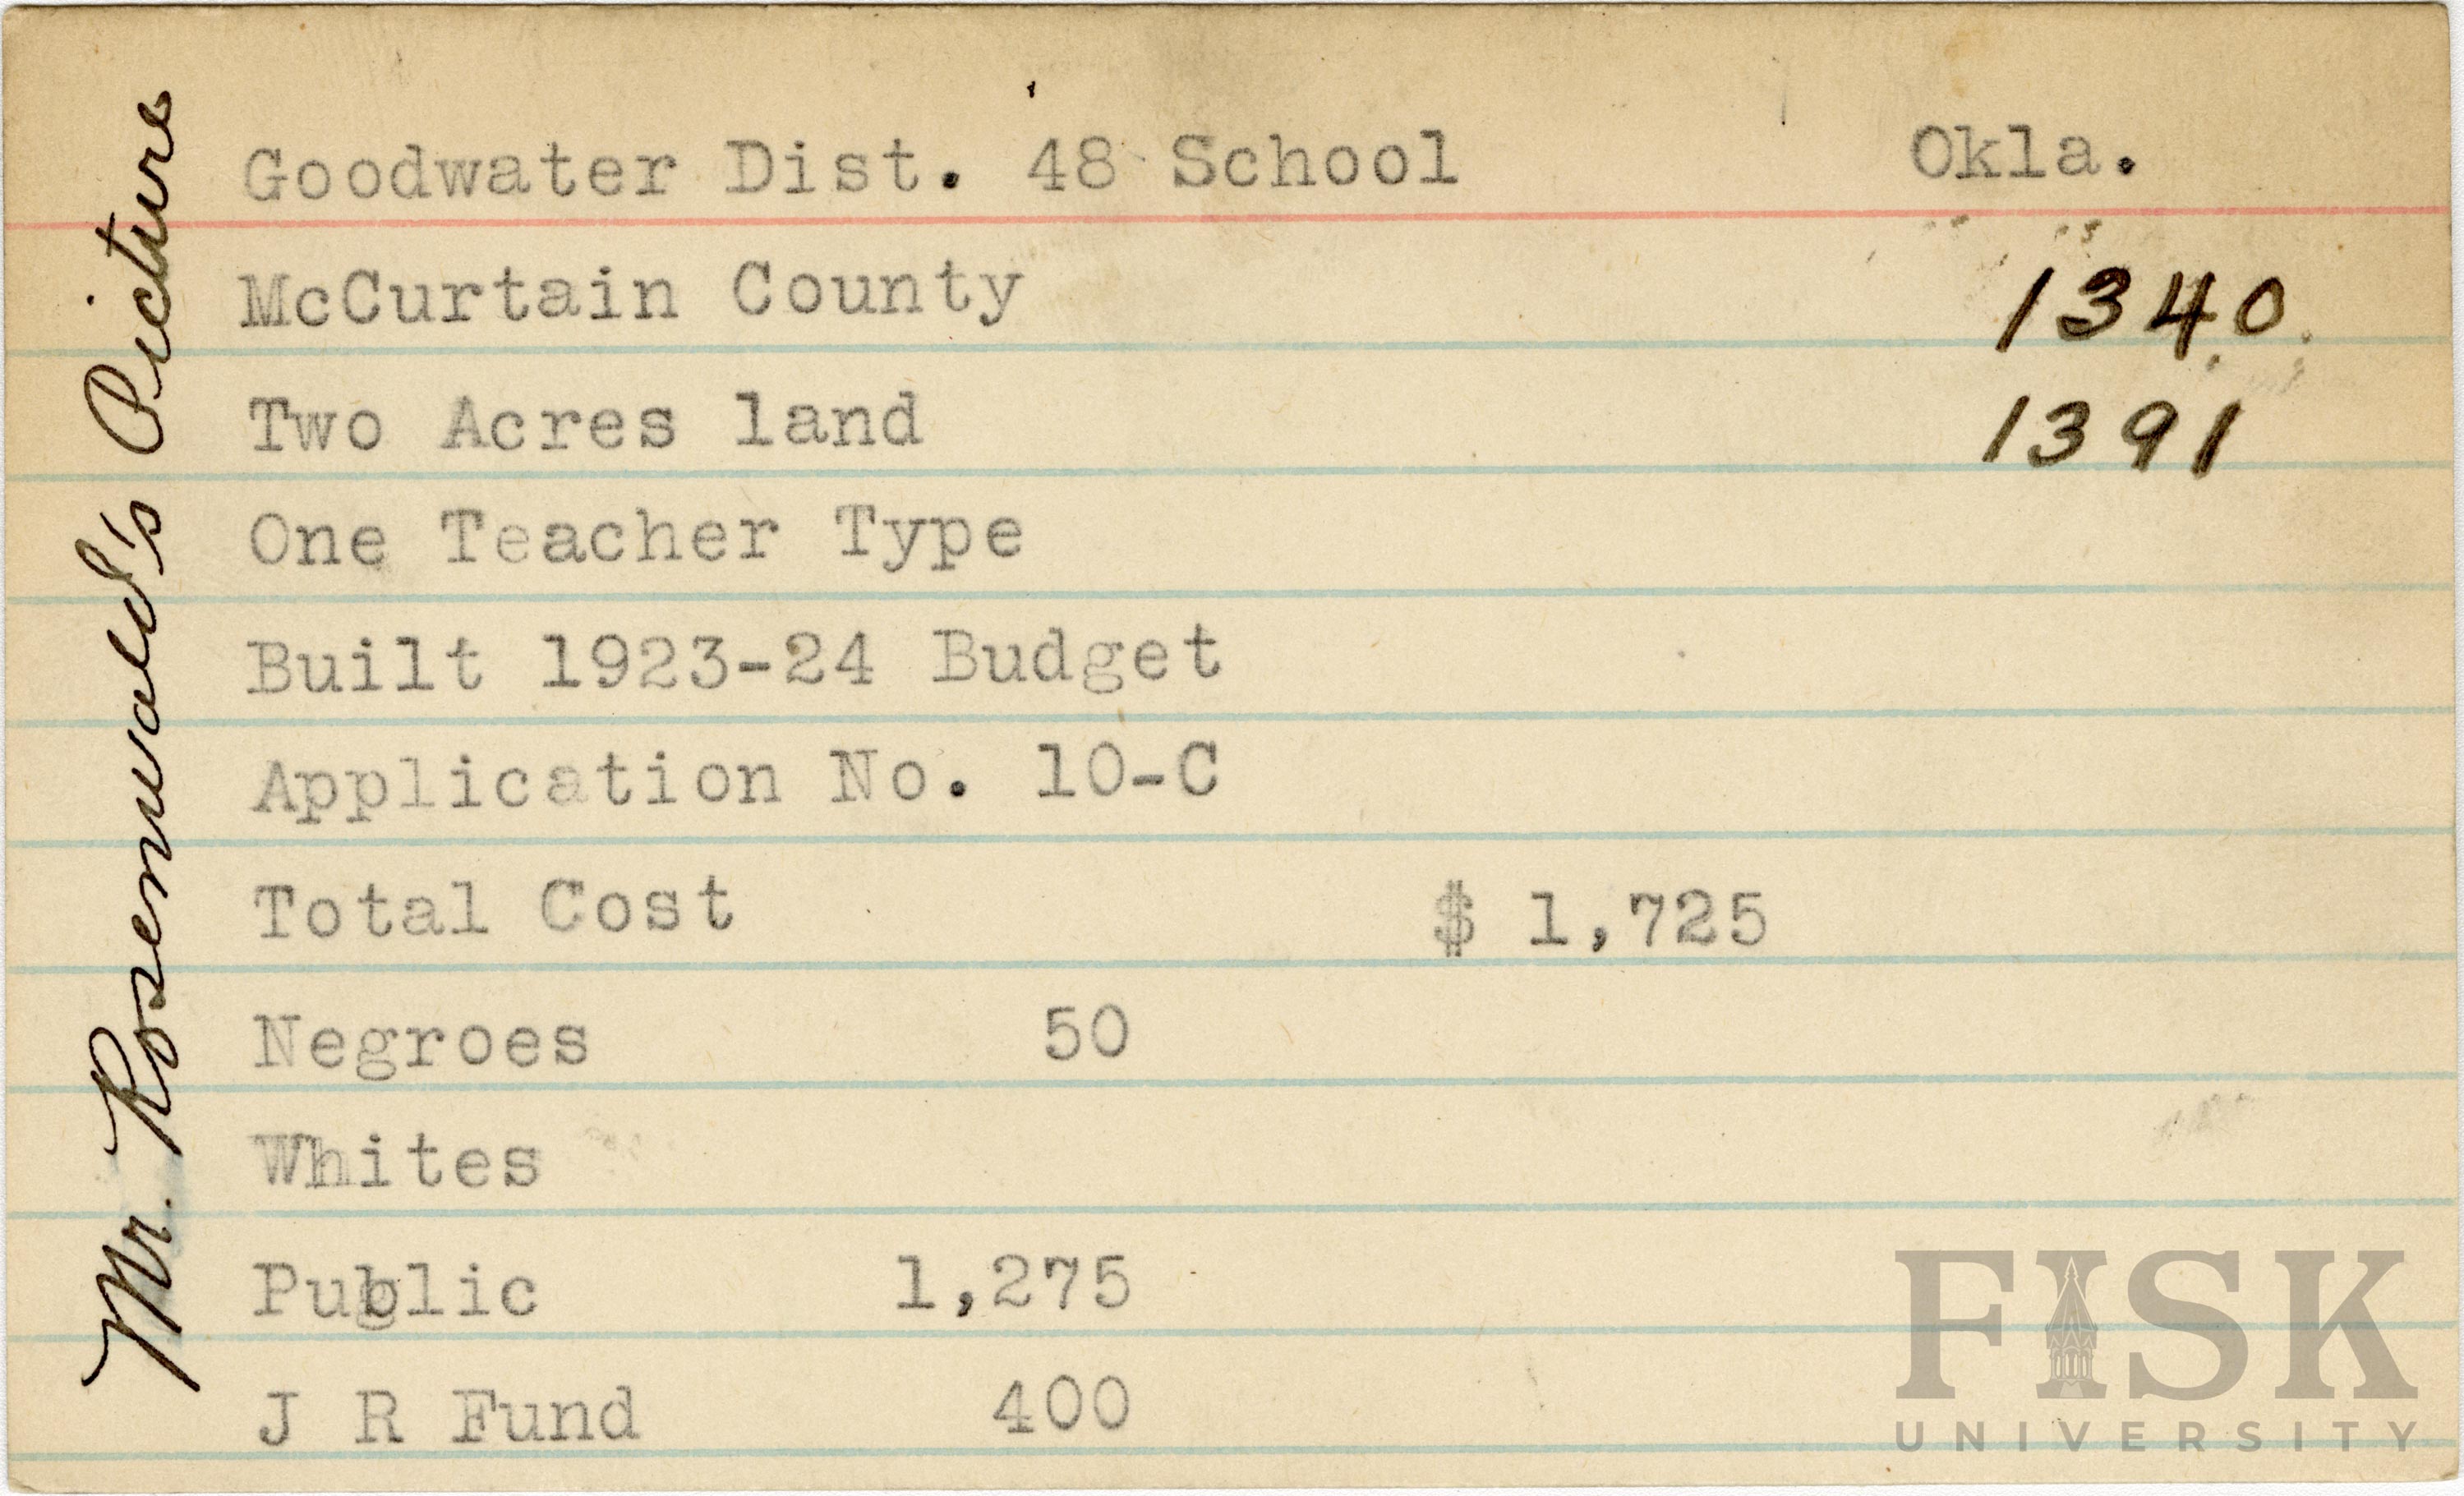 Goodwater Dist. 48 School Okla.
McCurtain County 1340
Two Acres land 1391
One Teacher Type
Built 1923-24 Budget
Application No. 10-C
Total Cost $ 1,725
Negroes 50
Whites
Public 1,275
J R Fund 400
Mr. Rosenwald's Picture
FISK
UNIVERSITY